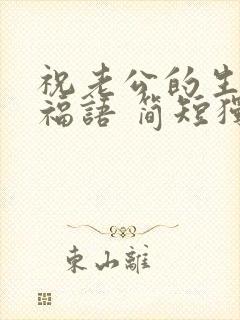 祝老公的生
福語 简短獨
東山離